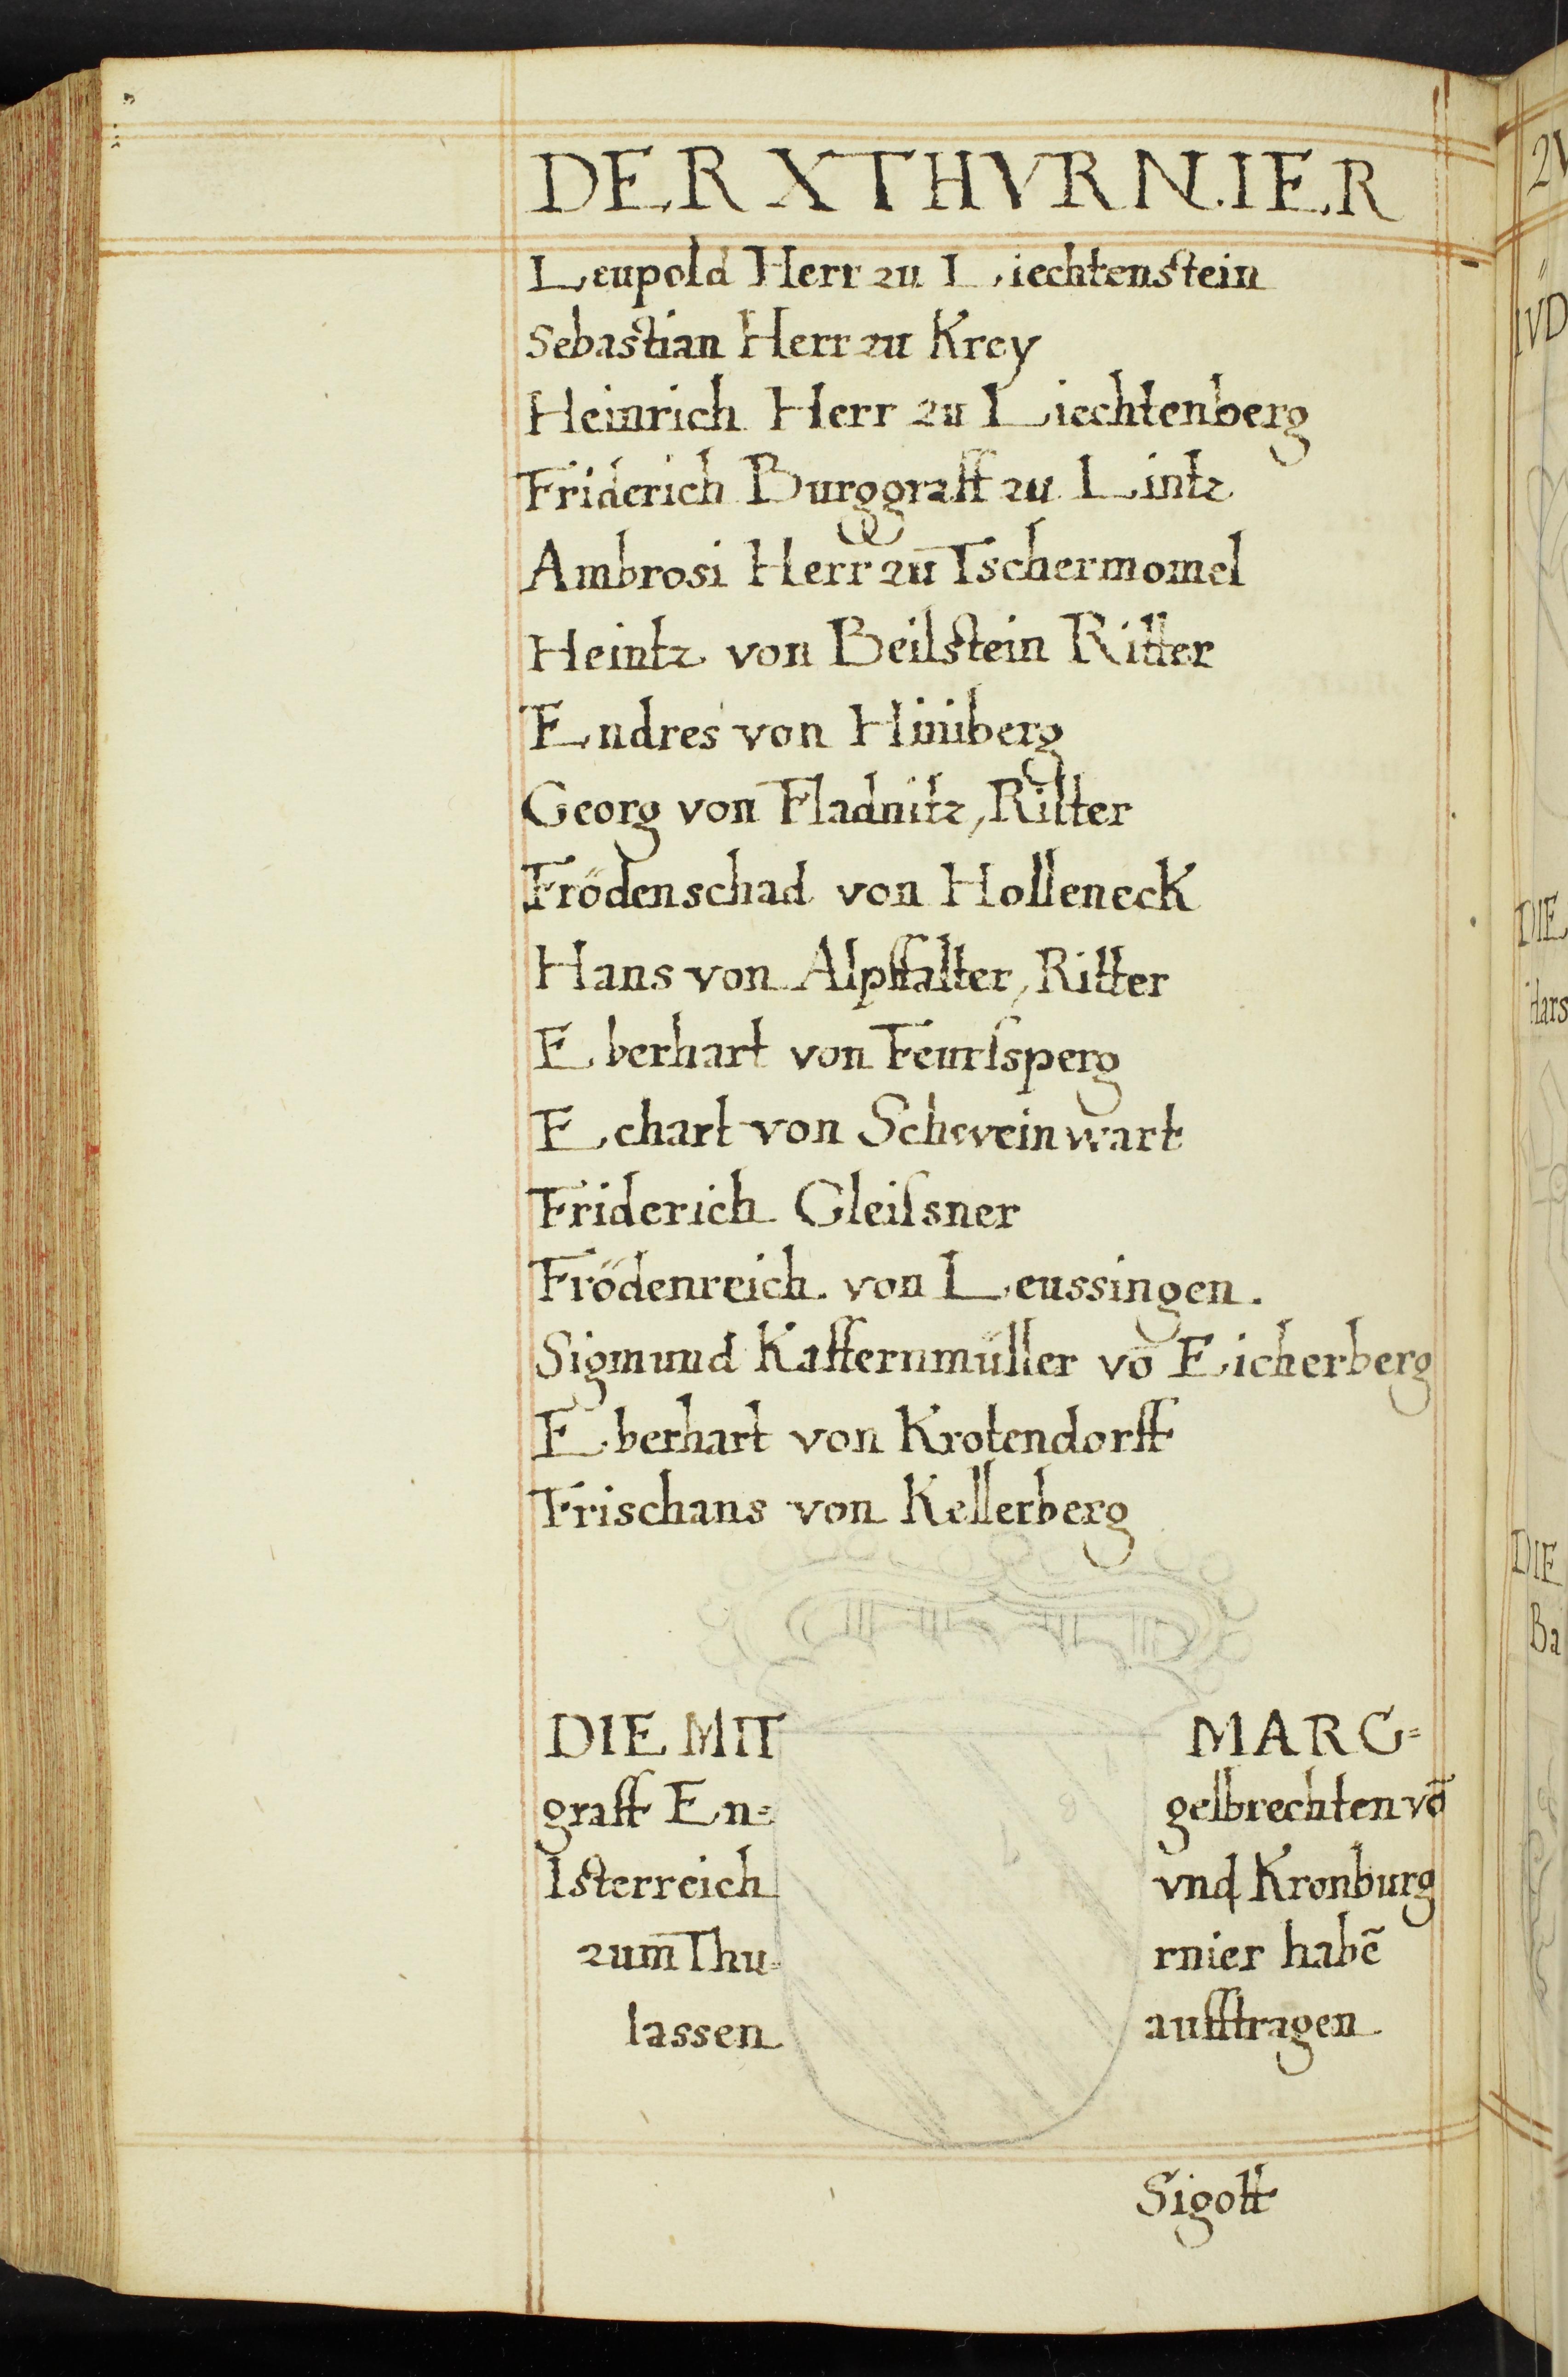 DER X THVRNIER
Leupold Herr zu Liechtenstein
Sebastian Herr zu Krey
Heinrich Herr zu Liechtenberg
Friderich Burggraff zu Lintz
Ambrosi Herr zu Tschermomel
Heintz von Beilstein Ritter
Endres von Hiniberg
Georg von Fladnitz, Ritter
Frödenschad von Holleneck
Hans von Alpffalter, Ritter
Eberhart von Feurſsperg
Echart von Scheveinwart
Friderich Gleiſsner
Frödenreich von Leussingen.
Sigmund Kaffernmüller vō Eicherberg
Eberhart von Krotendorff
Frischans von Kellerberg
DIE MIT MARG=
graff En= gelbrechten vō
Isterreich vnd Kronburg
zum Thu= rnier habē
lassen aufftragen
Sigott
DIE
Hars
DIE
Ba